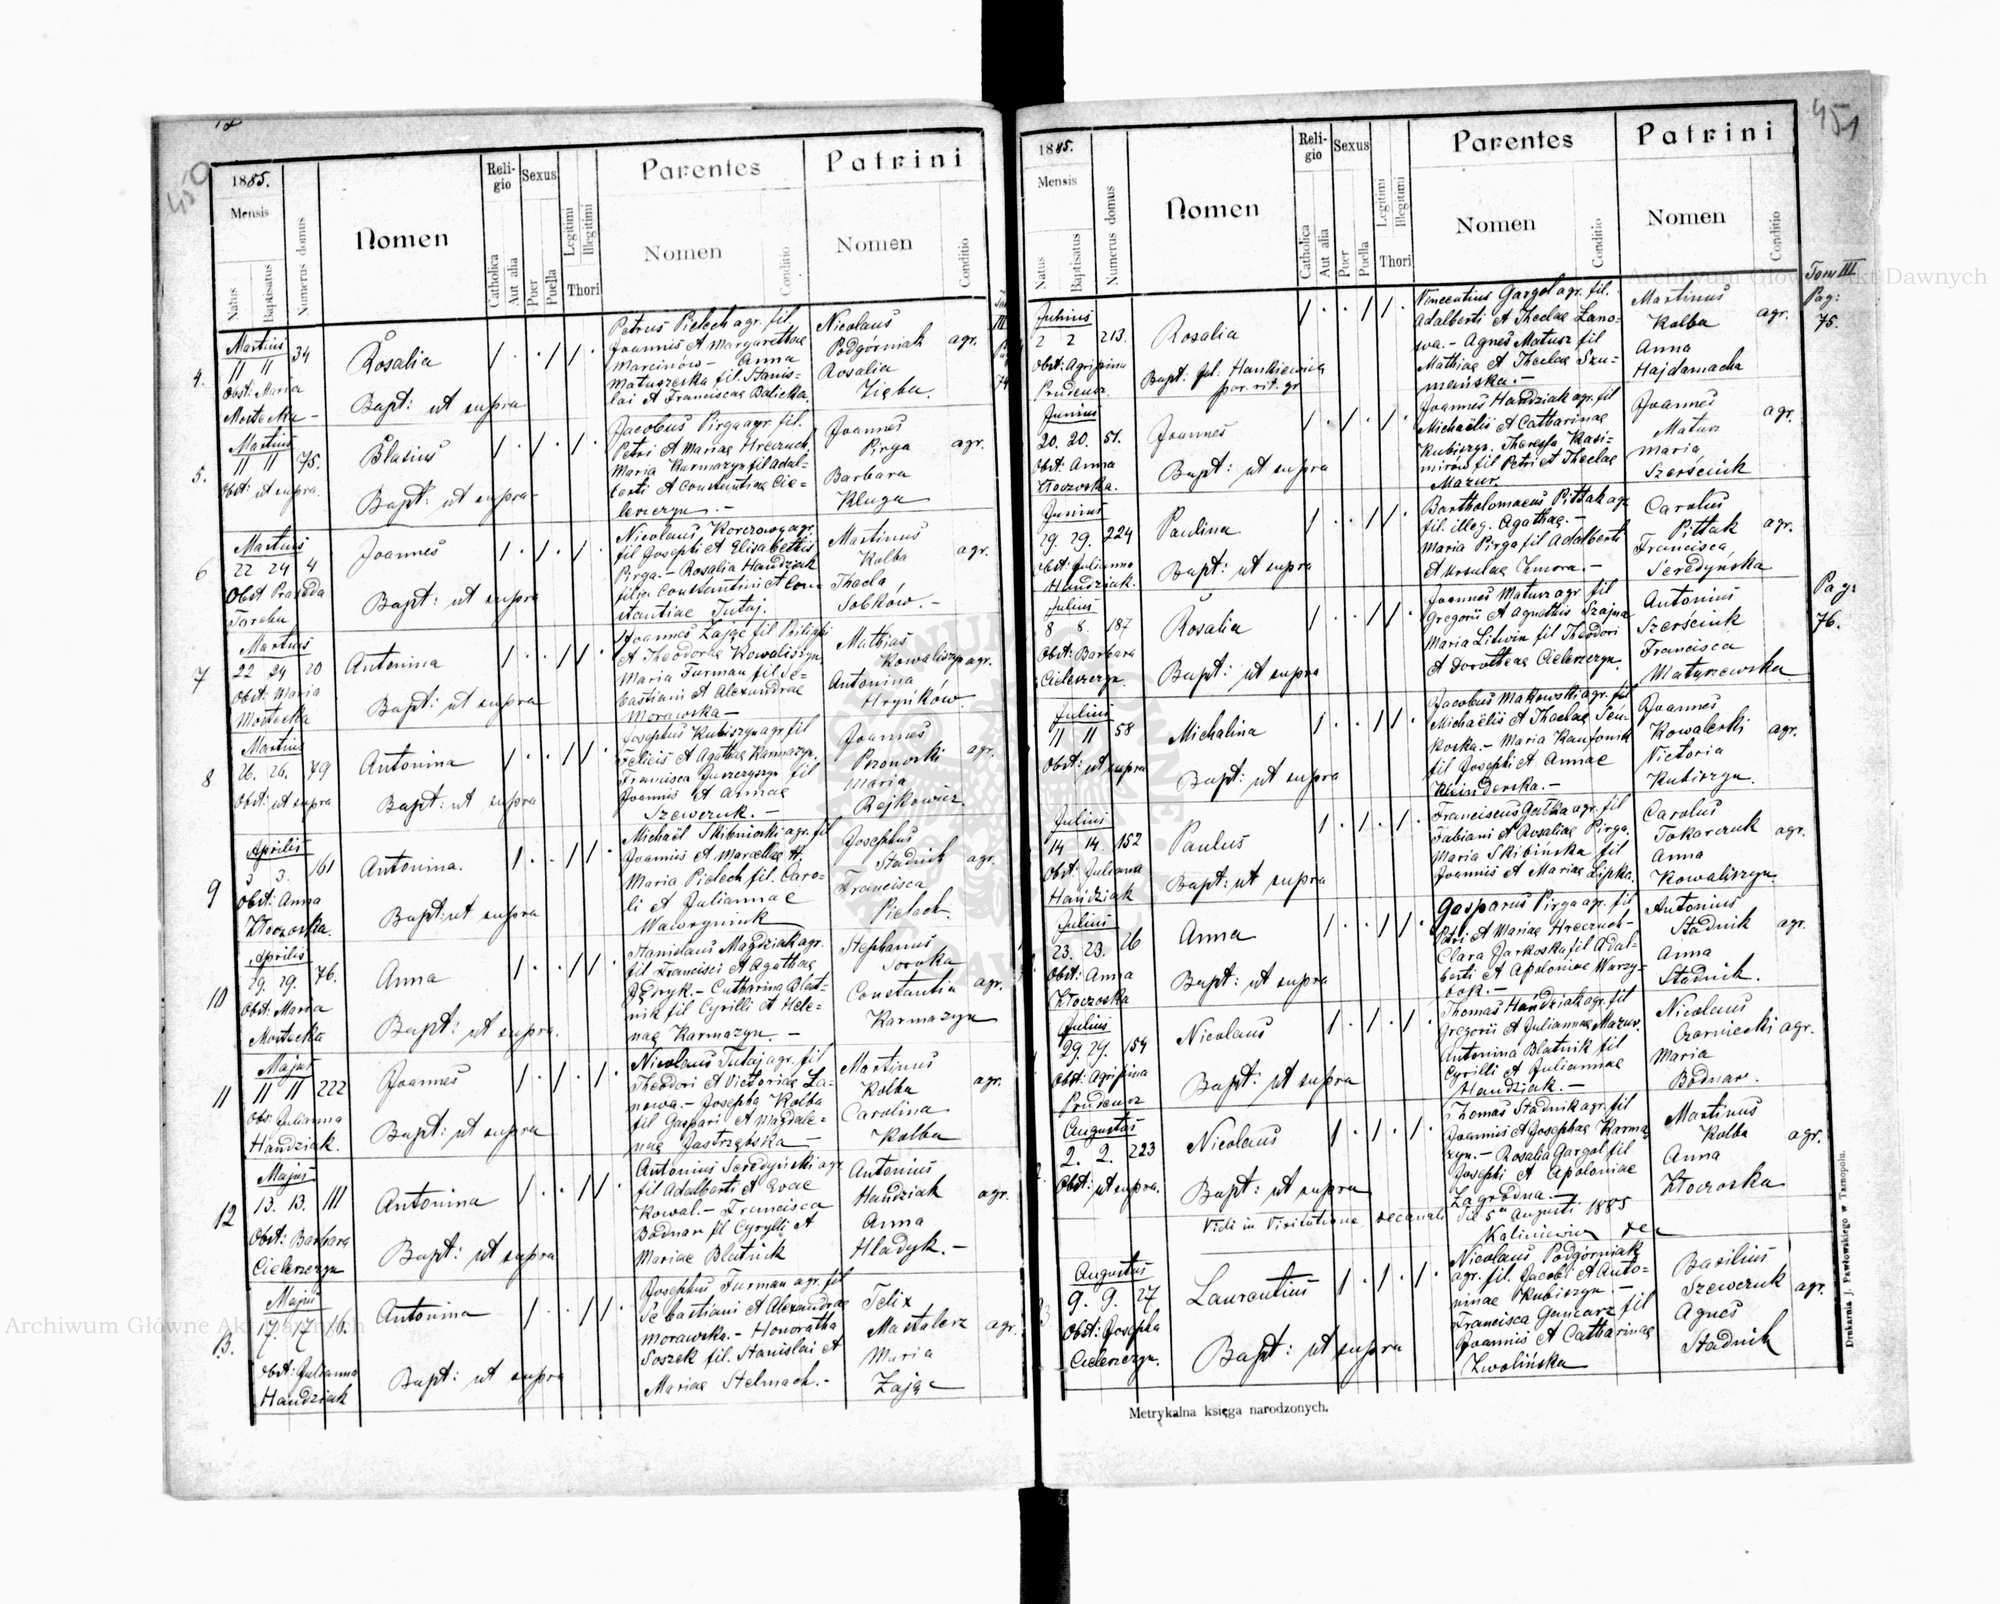 450
1885.
Mensis
Natus
Baptisatus
Numerus domus
Nomen
Religio
Catholica
Aut alia
Sexus
Puer
Puella
Legitimi
Illegitimi
Thori
Parentes
Nomen
Conditio
Patrini
Nomen
Conditio
4.
Martius
11 11 34
Obst: Maria
Mostecka -
Rosalia
Bapt: ut supra
Petrus Pielech agr. fil.
Joannis et Margarethae
Marcinów - Anna
Matuszeska fil. Stanis=
lai et Franciscae Balicka.
Nicolaus
Podgórniak agr.
Rosalia
Zięba.
5.
Martius
11 11 75.
Obst: ut supra.
Blasius
Bapt: ut supra
Jacobus Pirga agr. fil.
Petri et Mariae Hreczuch
Maria Karmazyn fil Adal=
berti et Constantiae Cie=
leszczyn. -
Joannes
Pirga agr.
Barbara
Kluga
6
Martius
22 24 4
Obst Praxeda
Taraba
Joannes
Bapt: ut supra
Nicolaus Korczowy agr.
fil Josephi et Elisabethis
Pirga. - Rosalia Handziak
filia Constantini et Con=
stantiae Tutaj.
Martinus
Kolba agr.
Thecla
Sobków. -
7
Martius
22 24 20
Obst: Maria
Mostecka
Antonina
Bapt: ut supra
Joannes Zając fil Philippi
et Theodorae Kowaliszyn
Maria Furman fil Se=
bastiani et Alexandrae
Morawska -
Mathias
Kowaliszyn agr.
Antonina
Hryńków
8
Martius
26. 26. 79
Obst: ut supra
Antonina
Bapt: ut supra
Josephus Kubiszyn agr. fil
Felicis et Agathae Karmazyn.
Francisca Juszczyszyn fil
Joannis et Annae
Szewczuk. -
Joannes
agr.
Maria
Rejkowicz
9
Aprilis
3 3. 161
Obst: Anna
Kłoczoska.
Antonina.
Bapt: ut supra
Michaël Skibnioski agr. fil
Joannis et Marcellae H.
Maria Pielech fil. Caro=
li et Juliannae
Waworyniuk
Josephus
Stadnik agr.
Francisca
Pielech.
10
Aprilis
29. 29. 76.
Obst: Maria
Mostecka
Anna
Bapt: ut supra.
Stanislaus Magdziak agr.
fil Francisci et Agathae
Jędryk. - Catharina Blat=
nik fil Cyrilli et Hele=
nae Karmazyn. -
Stephanus
Soroka
Constantia agr.
Karmazyn
11
Majus
11 11 222
Obs: Julianna
Handziak.
Joannes
Bapt: ut supra
Nicolaus Tutaj agr. fil
Theodori et Victoriae La=
nowa. - Josepha Kolba
fil Gaspari et Magdale=
nae Jastrzębska -
Martinus
Kolba agr.
Carolina
Kolba
12
Majus
13. 13. 111
Obst: Barbara
Cieleszczyn
Antonina
Bapt: ut supra
Antonius Seredyński agr
fil Adalberti et Evae
Kowal. - Francisca
Bodnar fil Cyrylli et
Mariae Blatnik
Antonius
Handziak agr.
Anna
Hladyk. -
13.
Majus
17. 17 16.
Obst: Julianna
Handziak
Antonina
Bapt: ut supra
Josephus Furman agr. fil
Sebastiani et Alexandrae
Morawska. - Honoratha
Soszek fil. Stanislai et
Mariae Stelmach. -
Felix
Mastalerz agr.
Maria
Zając
451
1885.
Mensis
Natus
Baptisatus
Numerus domus
Nomen
Religio
Catholica
Aut alia
Sexus
Puer
Puella
Legitimi
Illegitimi
Thori
Parentes
Nomen
Conditio
Patrini
Nomen
Conditio
Tom III
Pag:
75.
Junius
2 2 213.
Obst: Agripina
Prudeusz
Rosalia
Bapt: fel. Hankiewicz
par. rit. gr
Vincentius Gargol agr. fil.
Adalberti et Theclae Lano=
wa. - Agnes Matusz fil
Mathiae et Theclae Szu=
meńska. -
Martinus
Kolba agr.
Anna
Hajdamacha
Junius
20. 20. 51.
Obst: Anna
Kłoczoska.
Joannes
Bapt: ut supra
Joannes Handziak agr. fil
Michaëlis et Catharinae
Kubiszyn. Theressa Kasi=
mirów fil Petri et Theclae
Mazur.
Joannes
Matusz agr.
Maria
Szerściuk
Junius
29. 29. 224
Obst: Julianna
Handziak.
Paulina
Bapt: ut supra
Bartholomaeus Pittak agr
fil. illeg. Agathae. -
Maria Pirga fil Adalberti
et Ursulae Zmora. -
Carolus
Pittak agr.
Francisca
Seredynska
Pag:
76.
Julius
8 8. 187
Obst: Barbara
Cieleszczyn.
Rosalia
Bapt: ut supra
Joannes Matusz agr. fil
Gregorii et Agnethis Szajna
Maria Litwin fil Theodori
et Dorotheae Cieleszczyn.
Antonius
Szerściuk
Francisca
Matyszewska
Julius
11 11 58
Obst: ut supra
Michalina
Bapt: ut supra
Jacobus Makowski agr. fil
Michaëlis et Theclae Sen=
koska. - Maria
fil Josephi et Annae
Kuinderska. -
Joannes
Kowaleski agr.
Victoria
Kubiszyn.
Julius
14 14. 152
Obst: Julianna
Handziak
Paulus
Bapt: ut supra
Franciscus Gałka agr. fil
Fabiani et Rosaliae Pirga.
Maria Skibińska fil
Joannis et Mariae Lipka.
Carolus
Tokarczuk agr.
Anna
Kowaliszyn.
Julius
23. 23. 26
Obst: Anna
Kłoczoska
Anna
Bapt: ut supra
Gasparus Pirga agr. fil
Petri et Mariae Hreczuch-
Clara Jarkoska fil Adal=
berti et Apoloniae Warzy=
bok. -
Antonius
Stadnik agr.
Anna
Stadnik.
Julius
29. 29. 154
Obst: Agripina
Prudeusz
Nicolaus
Bapt: ut supra
Thomas Handziak agr. fil
Gregorii et Juliannae Mazur.
Antonina Blatnik fil
Cyrilli et Juliannae
Handziak. -
Nicolaus
Czarniecki agr.
Maria
Bodnar.
Augustus
2. 2. 223
Obst: ut supra.
Nicolaus
Bapt: ut supra
Thomas Stadnik agr. fil
Joannis et Josephae Karma
zyn. - Rosalia Gargol fil
Josephi et Apoloniae
Zagrodna. -
Martinus
Kolba agr.
Anna
Kłoczoska
Vidi in Visitatione decanali die 5a Augusti 1885
Kaliniewicz
Augustus
9. 9. 27
Obst: Josepha
Cieleszczyn.
Laurentius
Bapt: ut supra
Nicolaus Podgórniak
agr. fil. Jacobi et Anto=
ninae Kubiszyn. -
Francisca Gancarz fil
Joannis et Catharinae
Zwolińska
Basilius
Szewczuk agr.
Agnes
Stadnik
Metrykalna księga narodzonych.
Drukarnia J. Pawłowskiego w Tarnopolu.
Archiwum Główne Akt Dawnych
Archiwum Główne Akt Dawnych